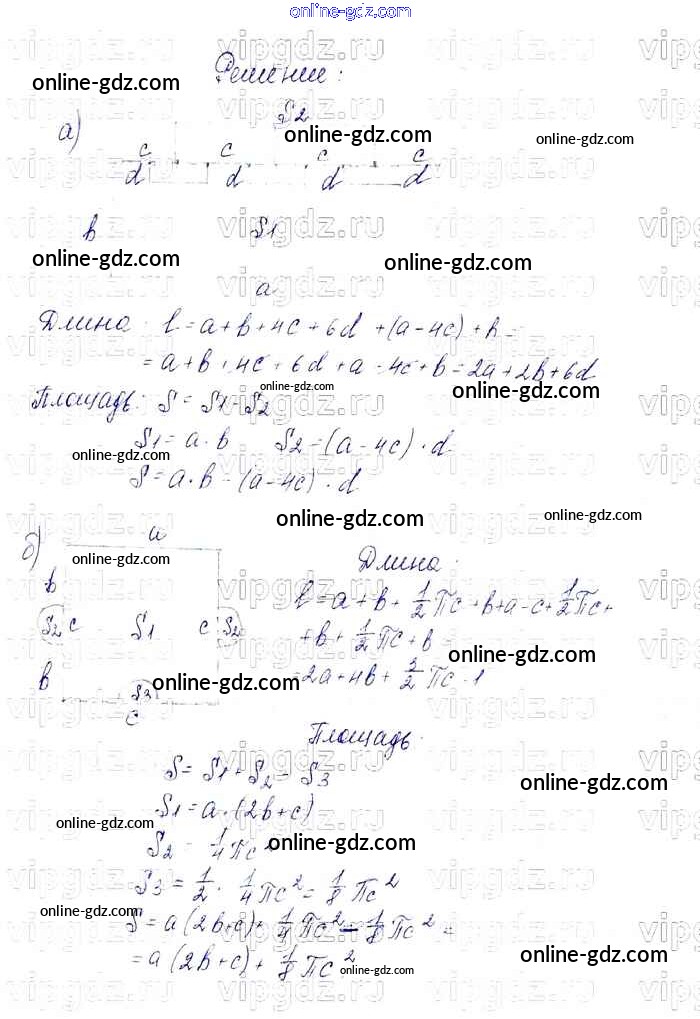 online-gdz.com
vipgdz.ru
Решение:
online-gdz.com
а) S2
online-gdz.com
online-gdz.com
c c c c
d d d d
b S1
online-gdz.com
online-gdz.com
a
Длина: l = a + b + 4c + 6d + (a - 4c) + b =
= a + b + 4c + 6d + a - 4c + b = 2a + 2b + 6d
online-gdz.com
online-gdz.com
Площадь: S = S1 - S2
S1 = a · b S2 = (a - 4c) · d
online-gdz.com
S = a · b - (a - 4c) · d
online-gdz.com
online-gdz.com
б) a
online-gdz.com
Длина:
b
l = a + b + 1/2 πc + b + a - c + 1/2 πc +
S2 c S1 c S2
+ b + 1/2 πc + b =
online-gdz.com
b S3
online-gdz.com
= 2a + 4b + 3/2 πc - 1
c
Площадь:
S = S1 + S2 - S3
online-gdz.com
S1 = a · (2b + c)
online-gdz.com
S2 = 1/4 πc²
online-gdz.com
S3 = 1/2 · 1/4 πc² = 1/8 πc²
online-gdz.com
S = a (2b + c) + 1/4 πc² - 1/8 πc² =
= a (2b + c) + 1/8 πc²
online-gdz.com
online-gdz.com